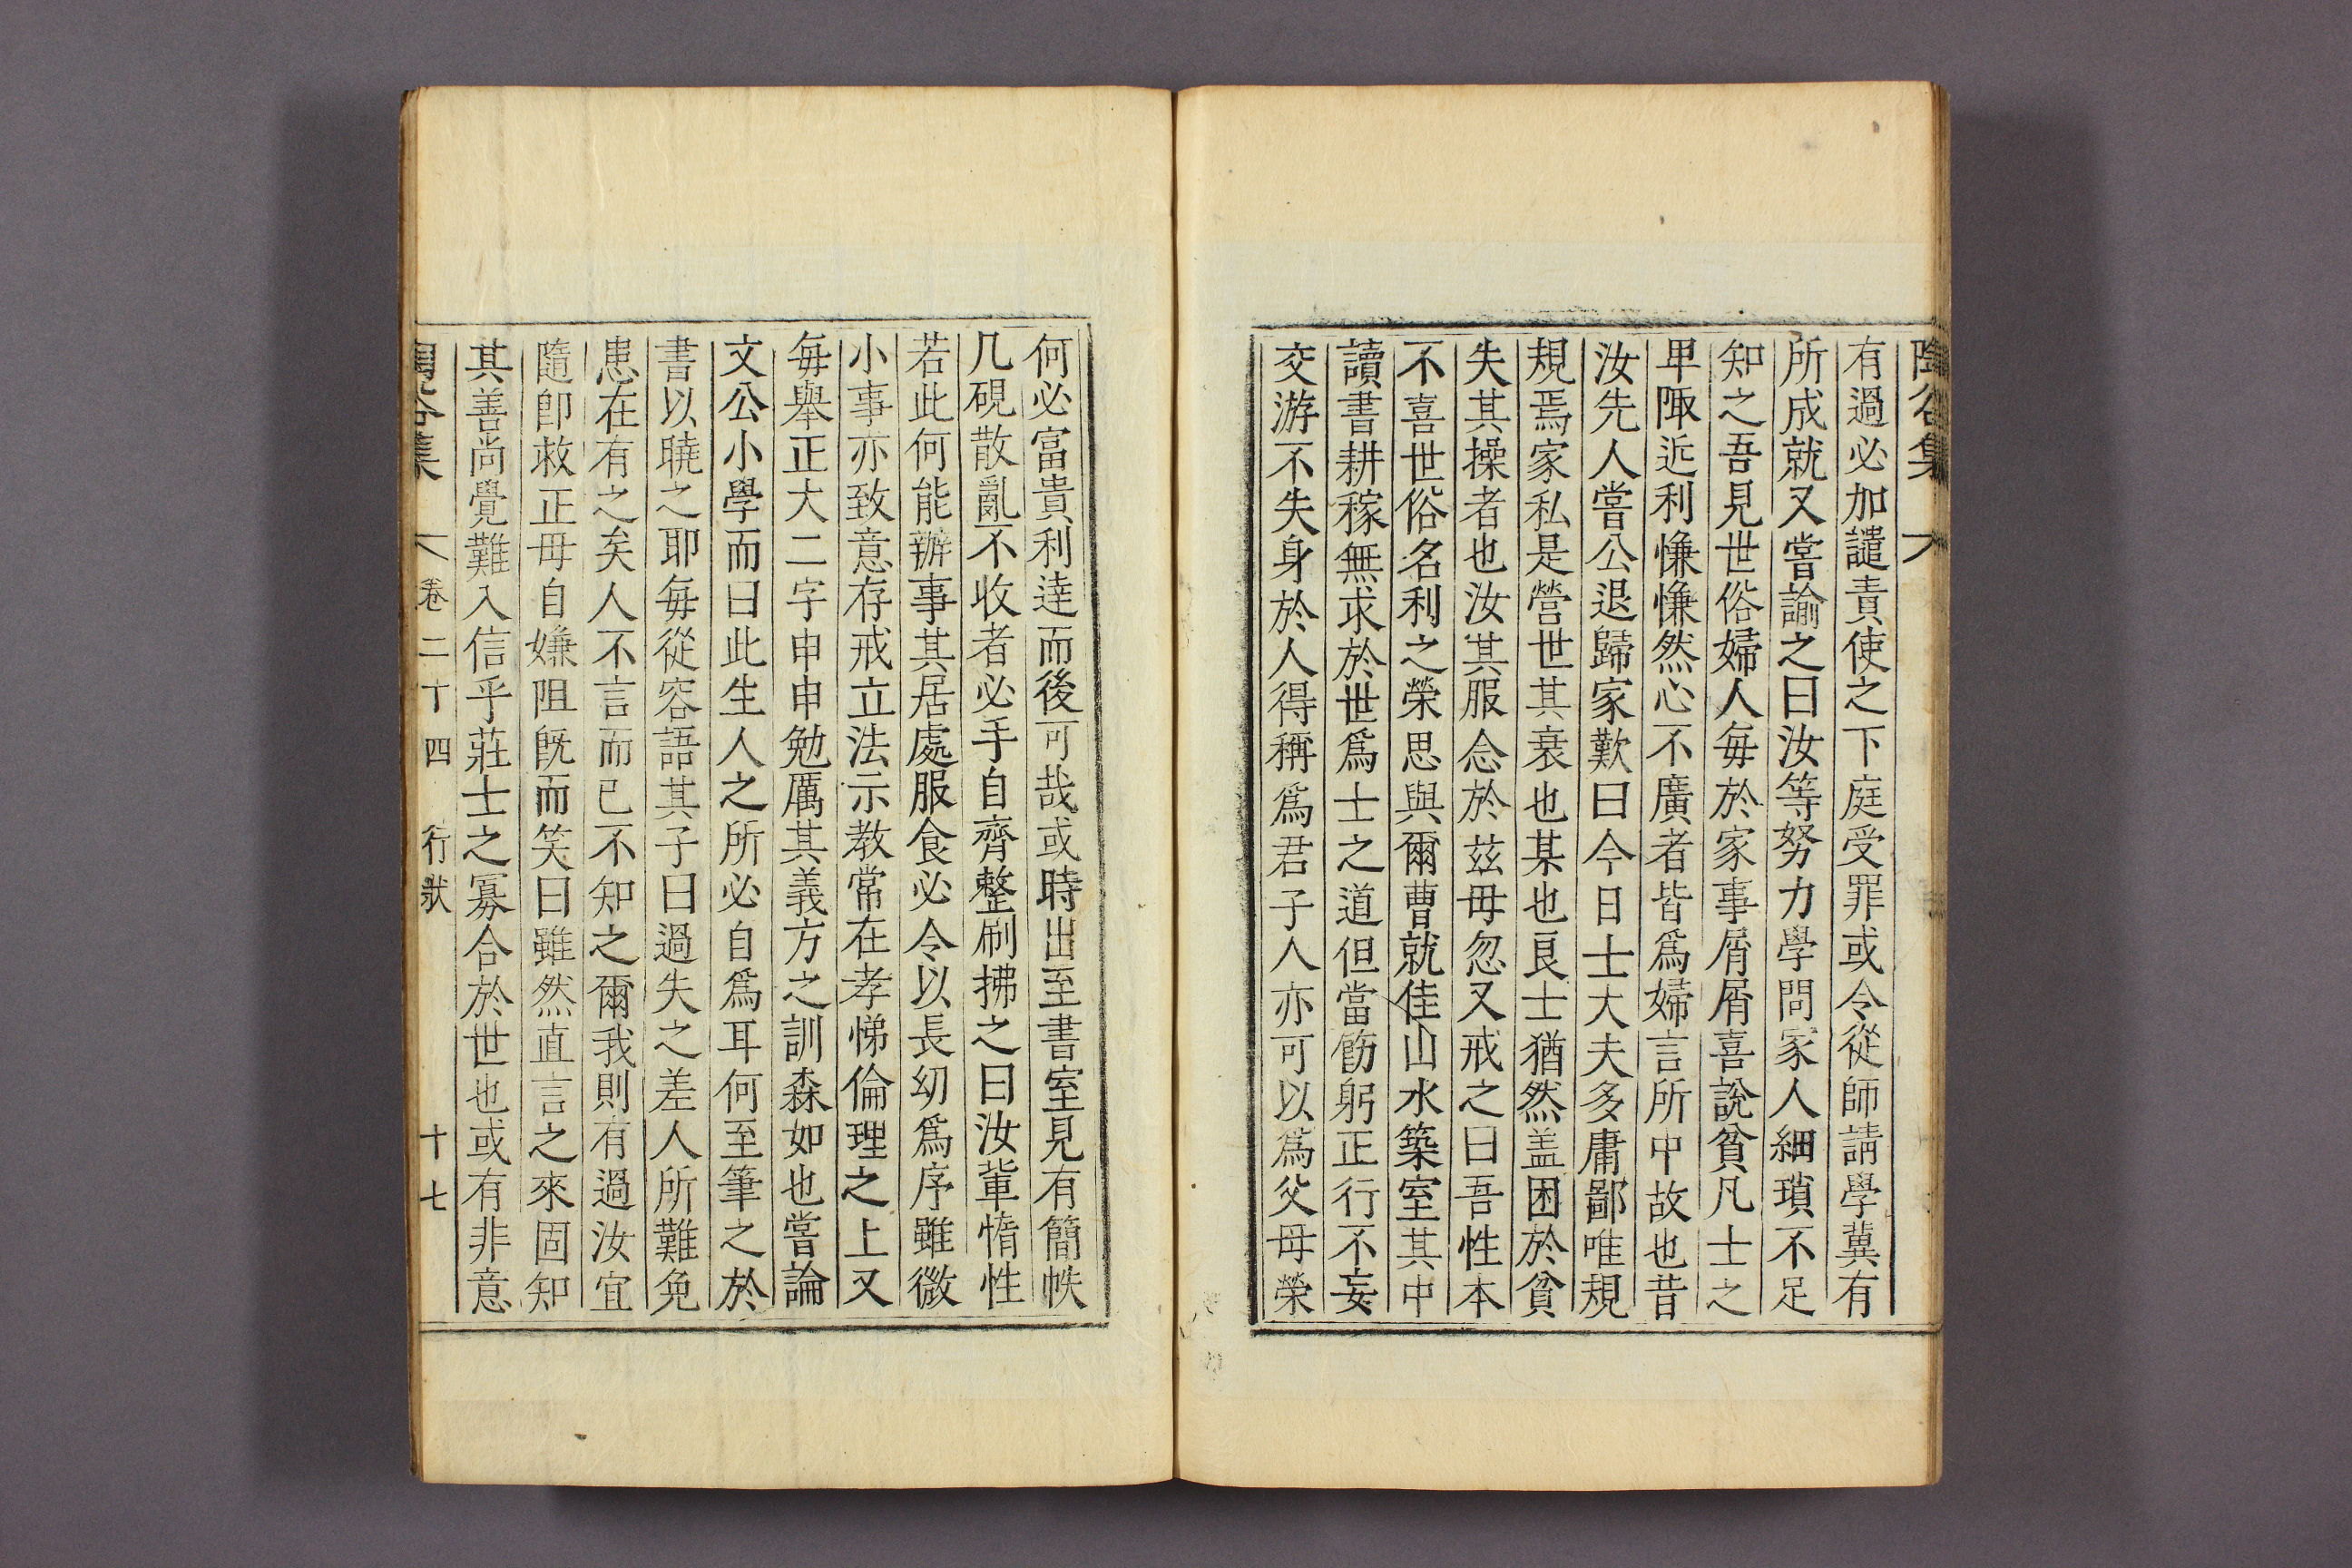 陶谷集
有過必加譴責使之下庭受罪或令從師請學冀有
所成就又嘗諭之曰汝等努力學問家人細瑣不足
知之吾見世俗婦人每於家事屑屑喜說貧凡士之
卑陬近利慊慊然心不廣者皆爲婦言所中故也昔
汝先人嘗公退歸家歎曰今日士大夫多庸鄙唯規
規焉家私是營世其衰也某也良士猶然盖困於貧
失其操者也汝其服念於茲毋忽又戒之曰吾性本
不喜世俗名利之榮思與爾曹就佳山水築室其中
讀書耕稼無求於世爲士之道但當飭躬正行不妄
交游不失身於人得稱爲君子人亦可以爲父母榮
何必富貴利達而後可哉或時出至書室見有簡帙
几硯散亂不收者必手自齊整刷拂之曰汝輩惰性
若此何能辦事其居處服食必令以長幼爲序雖微
小事亦致意存戒立法示教常在孝悌倫理之上又
每舉正大二字申申勉厲其義方之訓森如也嘗論
文公小學而曰此生人之所必自爲耳何至筆之於
書以曉之耶每從容語其子曰過失之差人所難免
患在有之矣人不言而已不知之爾我則有過汝宜
隨卽救正毋自嫌阻旣而笑曰雖然直言之來固知
其善尚覺難入信乎莊士之寡合於世也或有非意
陶谷集 卷二十四 行狀 十七